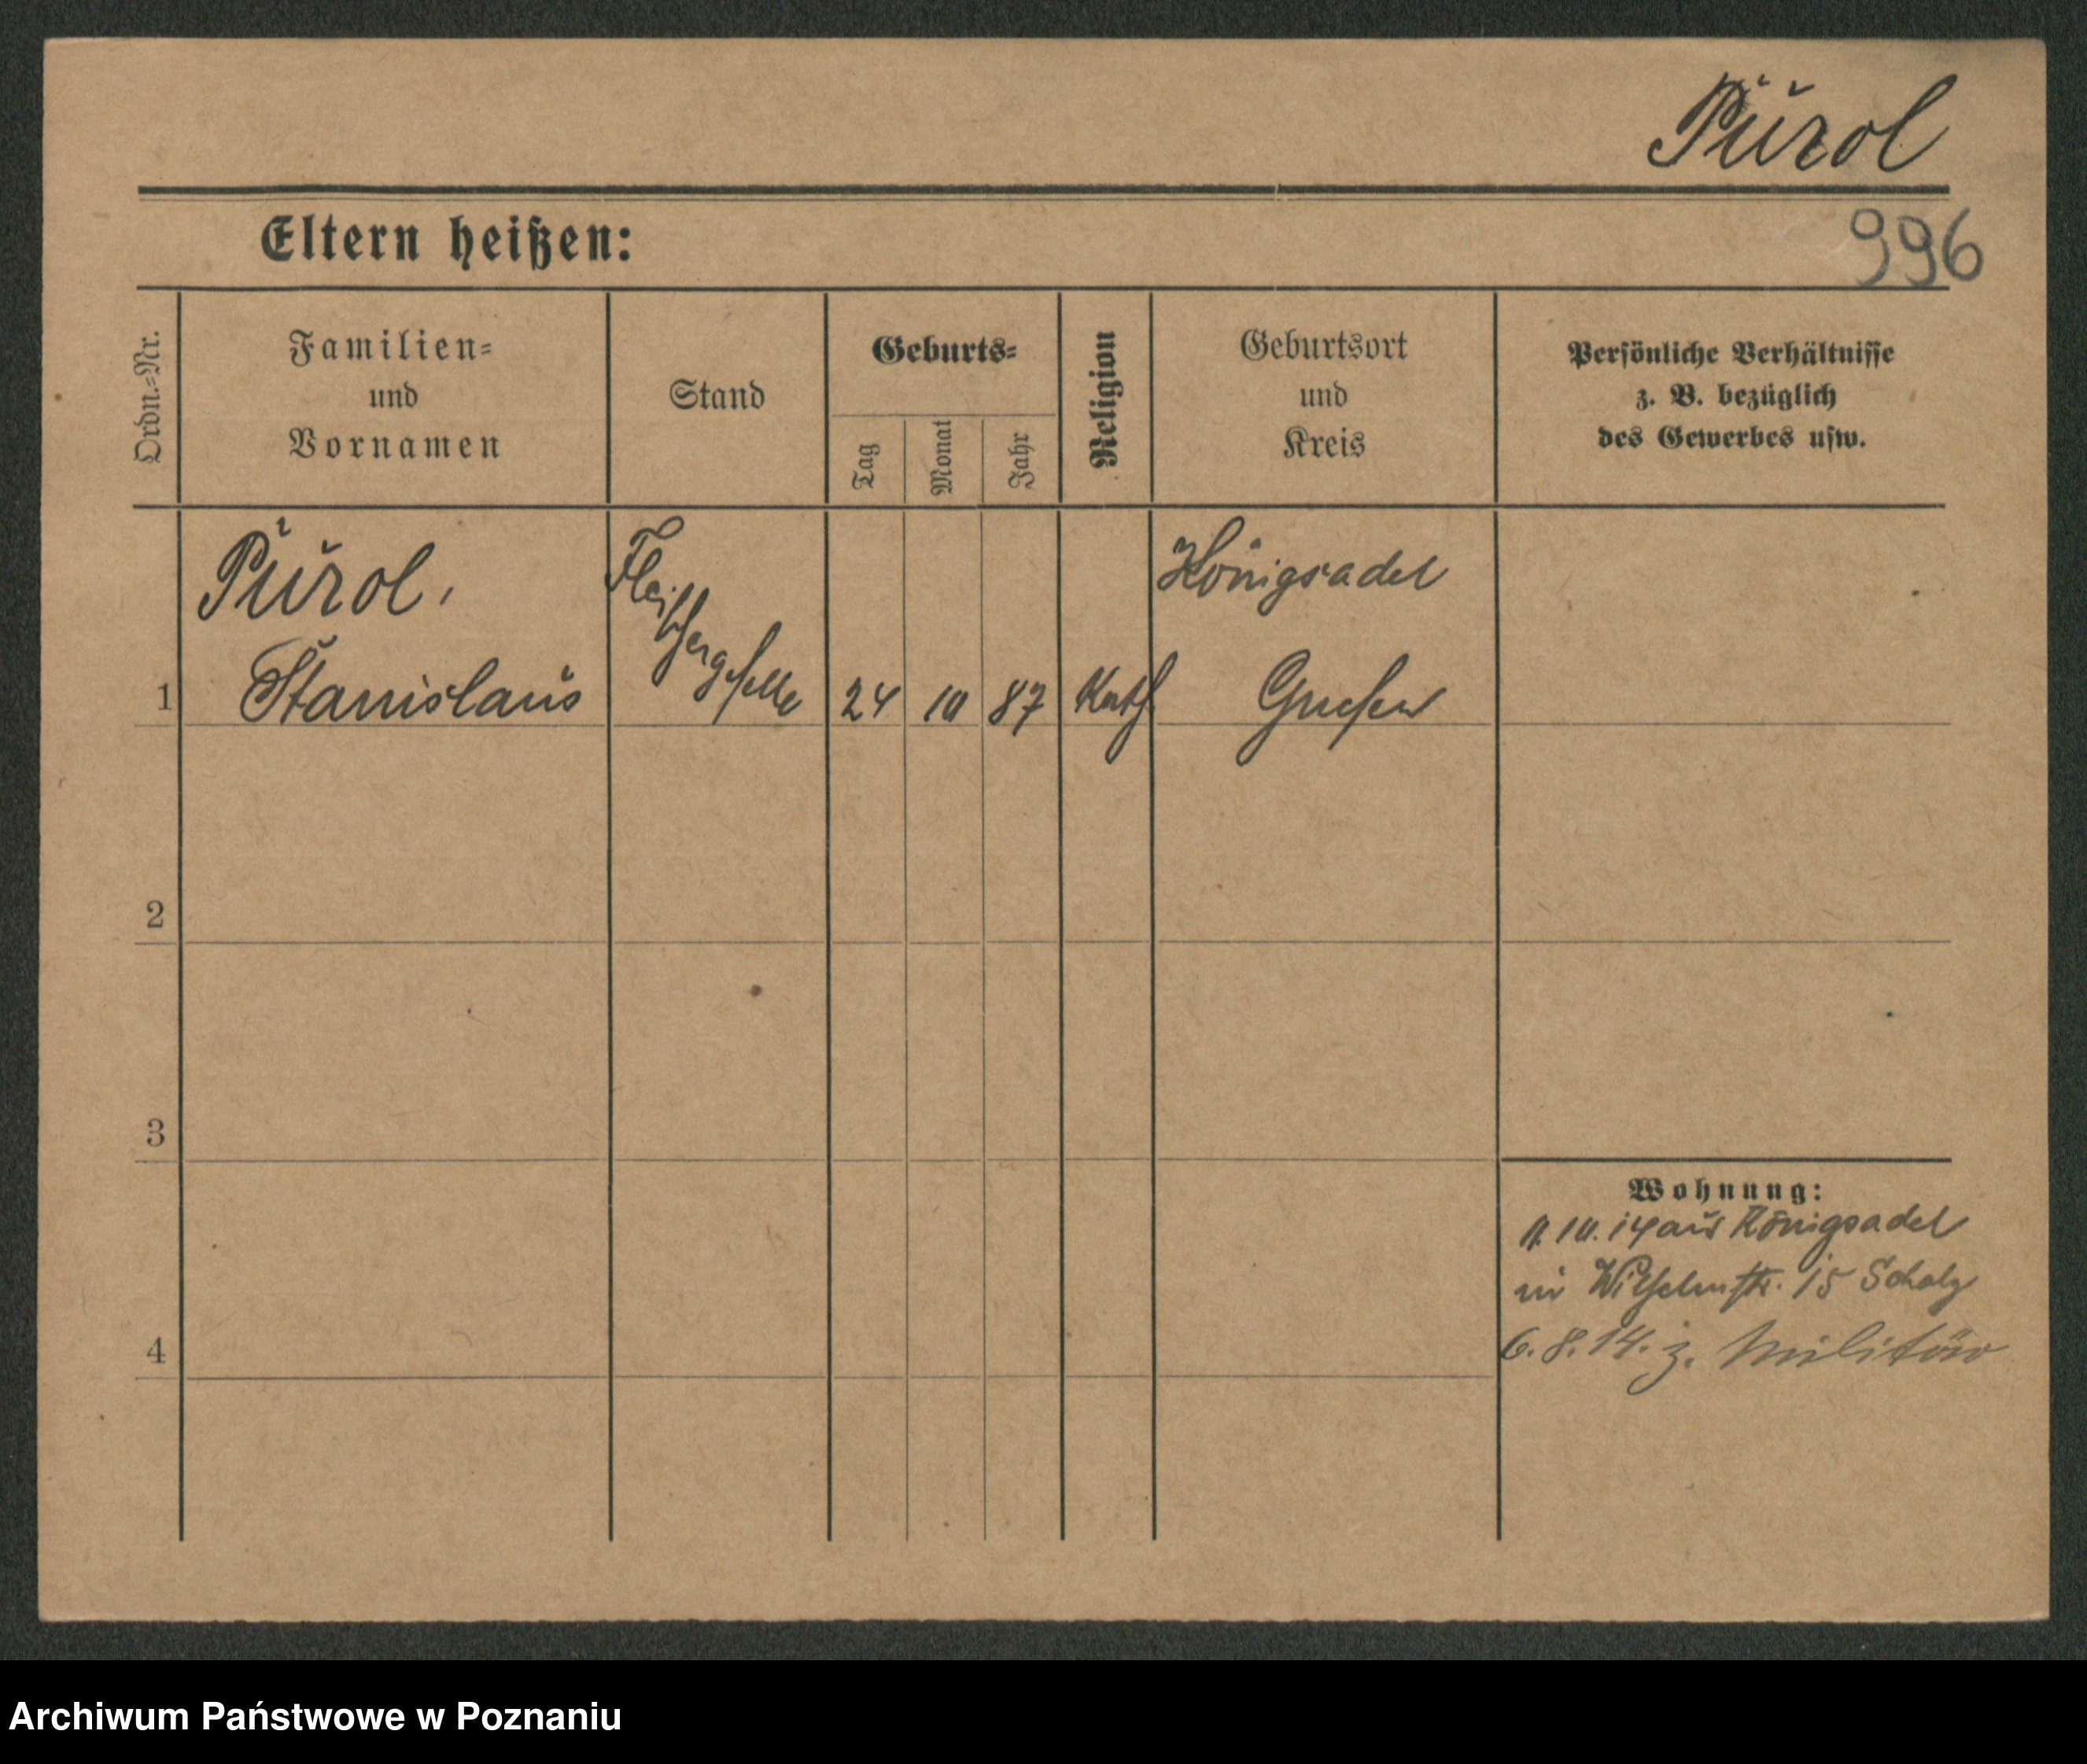 Purol
Eltern heißen:
996
Ordn.-Nr.
Familien-
und
Vornamen
Stand
Geburts-
Tag
Monat
Jahr
Religion
Geburtsort
und
Kreis
Persönliche Verhältnisse
z. B. bezüglich
des Gewerbes usw.
Purol,
Stanislaus
Fleischergeselle
1
24 10 87 Kath
Königsadel
Gnesen
2
3
4
Wohnung:
10. 14 aus Königsadel
in Wilhelmstr. 15 Scholz
6.8.14. z. Militär
Archiwum Państwowe w Poznaniu